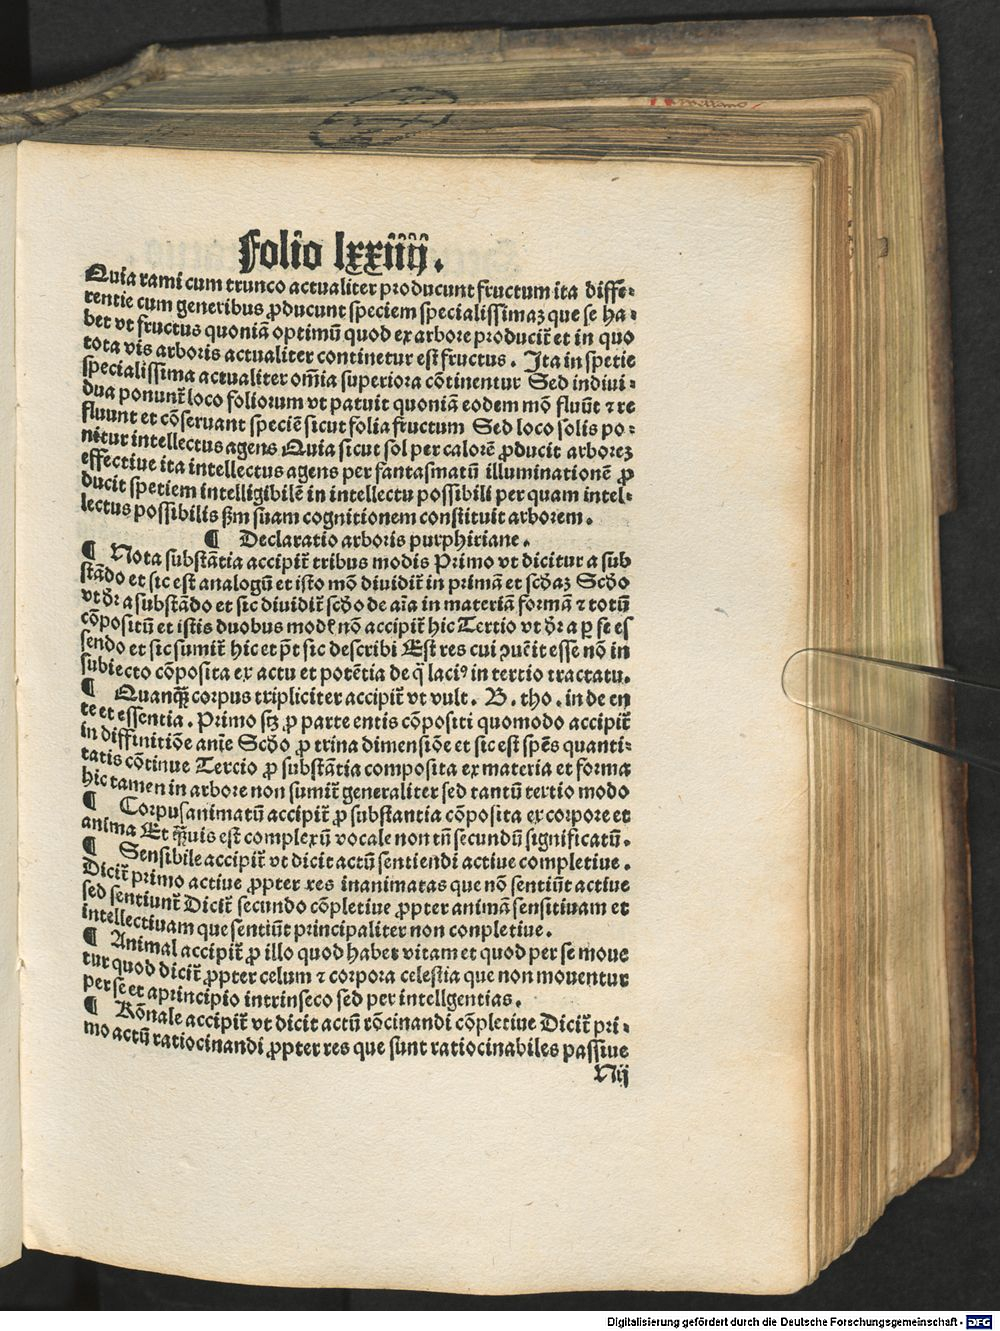 Folio lxxiiij.
Quia rami cum trunco actualiter producunt fructum ita diffe⸗
rentie cum generibus ꝓducunt speciem specialissimaȝ que se ha⸗
bet vt fructus quoniā optimū quod ex arbore producit᷑ et in quo
tota vis arboris actualiter continetur est fructus. Ita in spetie
specialissima actualiter om̄ia superiora cōtinentur Sed indiui⸗
dua ponunt᷑ loco foliorum vt patuit quoniā eodem mō fluūt ⁊ re
fluunt et cōseruant speciē sicut folia fructum Sed loco solis po⸗
nitur intellectus agens Quia sicut sol per calorē ꝓducit arboreȝ
effectiue ita intellectus agens per fantasmatū illuminationē ꝓ
ducit spetiem intelligibilē in intellectu possibili per quam intel⸗
lectus possibilis ẜm suam cognitionem constituit arborem.
¶ Declaratio arboris purphiriane.
¶ Nota substātia accipit᷑ tribus modis Primo vt dicitur a sub
stādo et sic est analogū et isto mō diuidit᷑ in primā et scd̄aȝ Scd̄o
vt dr̄ a substādo et sic diuidit᷑ scd̄o de aīa in materiā formā ⁊ totū
cōpositū et istis duobus modꝭ nō accipit᷑ hic Tertio vt dr̄ a ꝑ se es
sendo et sic sumit᷑ hic et pt̄ sic describi Est res cui ꝯuēit esse nō in
subiecto cōposita ex actu et potētia de q̄ laciꝰ in tertio tractatu.
¶ Quanqꝫ corpus tripliciter accipit᷑ vt vult. B. tho. in de en
te et essentia. Primo sꝫ ꝓ parte entis cōpositi quomodo accipit᷑
in diffinitiōe anīe Scd̄o ꝓ trina dimensiōe et sic est spēs quanti⸗
tatis cōtinue Tercio ꝓ substātia composita ex materia et forma
hic tamen in arbore non sumit᷑ generaliter sed tantū tertio modo
¶ Corpus animatū accipit᷑ ꝓ substantia cōposita ex corpore et
anima Et qꝫuis est complexū vocale non tn̄ secundū significatū.
¶ Sensibile accipit᷑ vt dicit actū sentiendi actiue completiue.
Dicit᷑ primo actiue ꝓpter res inanimatas que nō sentiūt actiue
sed sentiunt᷑ Dicit᷑ secundo cōpletiue ꝓpter animā sensitiuam et
intellectiuam que sentiūt principaliter non conpletiue.
¶ Animal accipit᷑ ꝓ illo quod habet vitam et quod per se moue
tur quod dicit᷑ ꝓpter celum ⁊ corpora celestia que non mouentur
per se et a principio intrinseco sed per intellgentias.
¶ Rōnale accipit᷑ vt dicit actū rōcinandi cōpletiue Dicit᷑ pri⸗
mo actū ratiocinandi ꝓpter res que sunt ratiocinabiles passiue
Nij
Digitalisierung gefördert durch die Deutsche Forschungsgemeinschaft - DFG